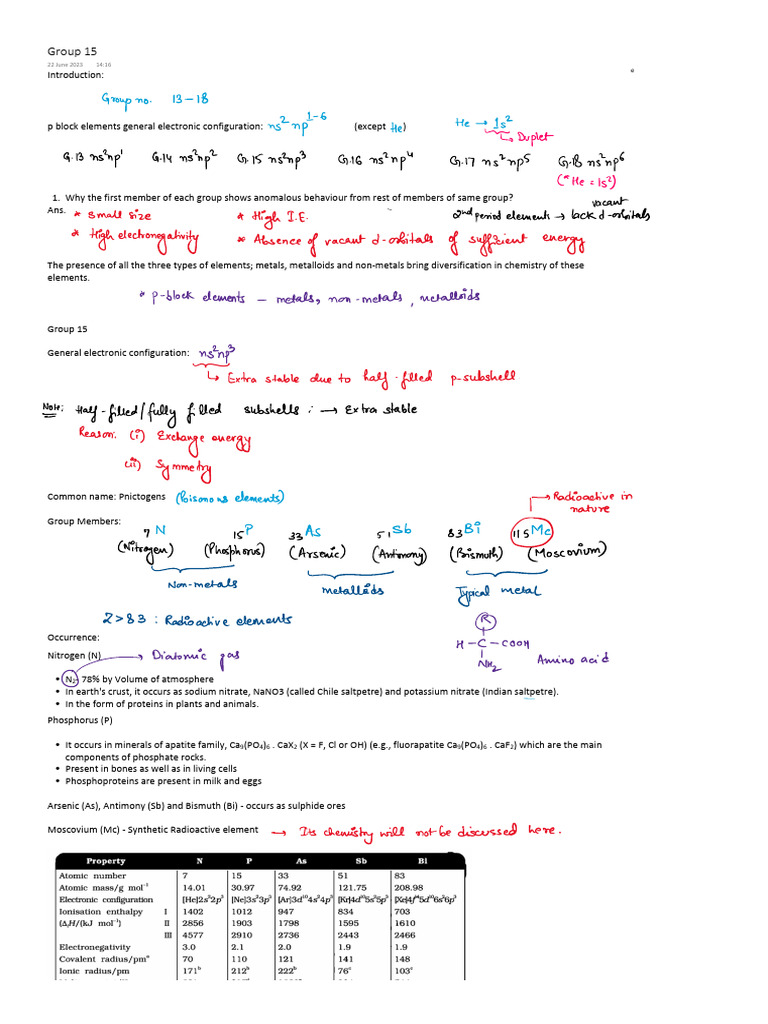 Group 15
22 June 2023 14:16
Introduction:
Group no. 13-18
p block elements general electronic configuration: ns² np¹⁻⁶ (except He) He → 1s²
↳ Duplet
G.13 ns²np¹ G.14 ns²np² G.15 ns²np³ G.16 ns²np⁴ G.17 ns²np⁵ G.18 ns²np⁶
(* He = 1s²)
1. Why the first member of each group shows anomalous behaviour from rest of members of same group?
Ans. * Small size * High I.E. 2nd period elements → lack vacant d-orbitals
* High electronegativity * Absence of vacant d-orbitals of sufficient energy
The presence of all the three types of elements; metals, metalloids and non-metals bring diversification in chemistry of these
elements.
* p-block elements – metals, non-metals, metalloids
Group 15
General electronic configuration: ns²np³
↳ Extra stable due to half-filled p-subshell
Note: Half-filled/fully filled subshells : → Extra stable
Reason: (i) Exchange energy
(ii) Symmetry
Common name: Pnictogens (Poisonous elements) → Radioactive in nature
Group Members:
₇N ₁₅P ₃₃As ₅₁Sb ₈₃Bi ₁₁₅Mc
(Nitrogen) (Phosphorus) (Arsenic) (Antimony) (Bismuth) (Moscovium)
Non-metals metalloids Typical metal
Z > 83 : Radioactive elements
R
Occurrence:
H – C – COOH
Nitrogen (N) → Diatomic gas
NH₂ Amino acid
• N₂- 78% by Volume of atmosphere
• In earth's crust, it occurs as sodium nitrate, NaNO3 (called Chile saltpetre) and potassium nitrate (Indian saltpetre).
• In the form of proteins in plants and animals.
Phosphorus (P)
• It occurs in minerals of apatite family, Ca₉(PO₄)₆ . CaX₂ (X = F, Cl or OH) (e.g., fluorapatite Ca₉(PO₄)₆ . CaF₂) which are the main
components of phosphate rocks.
• Present in bones as well as in living cells
• Phosphoproteins are present in milk and eggs
Arsenic (As), Antimony (Sb) and Bismuth (Bi) - occurs as sulphide ores
Moscovium (Mc) - Synthetic Radioactive element → Its chemistry will not be discussed here.
Property N P As Sb Bi
Atomic number 7 15 33 51 83
Atomic mass/g mol⁻¹ 14.01 30.97 74.92 121.75 208.98
Electronic configuration [He]2s²2p³ [Ne]3s²3p³ [Ar]3d¹⁰4s²4p³ [Kr]4d¹⁰5s²5p³ [Xe]4f¹⁴5d¹⁰6s²6p³
Ionisation enthalpy I 1402 1012 947 834 703
(ΔᵢH/(kJ mol⁻¹) II 2856 1903 1798 1595 1610
III 4577 2910 2736 2443 2466
Electronegativity 3.0 2.1 2.0 1.9 1.9
Covalent radius/pmᵃ 70 110 121 141 148
Ionic radius/pm 171ᵇ 212ᵇ 222ᵇ 76ᶜ 103ᶜ